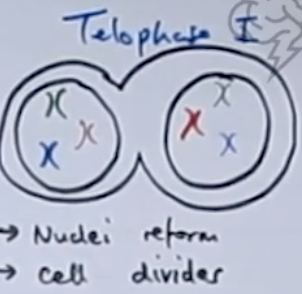 Telophase I
→ Nuclei reform
→ cell divides